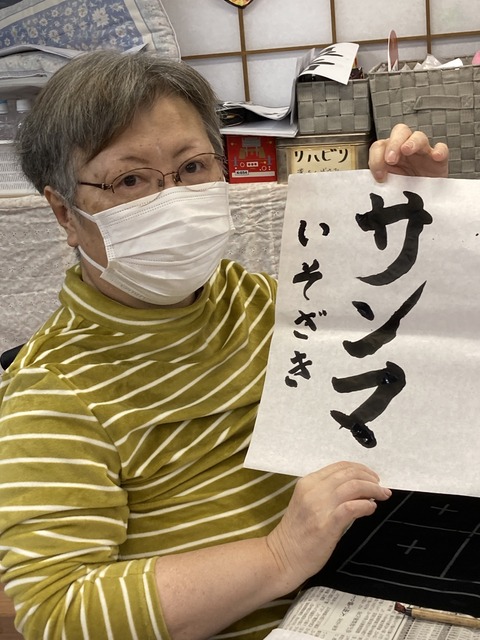 サンマ
いそざき
リハビリ